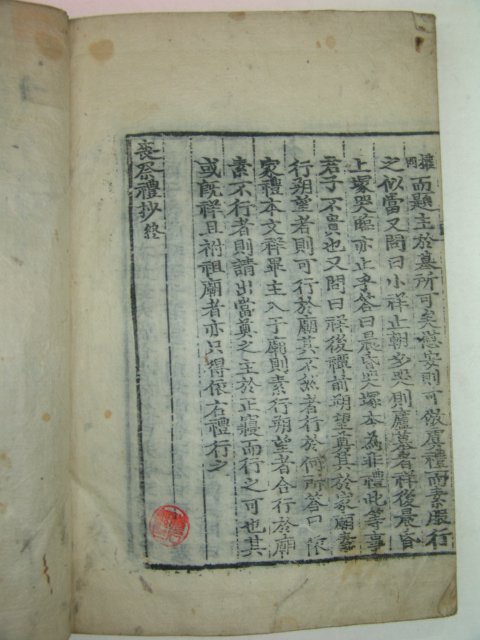 權而題主於墓所可矣葬安則可倣虞禮而素 行
之似當又問曰小祥止朝夕哭則廬墓者祥後晨昏
上塚哭臨亦止乎答曰晨昏哭塚本為非禮此等事
君子不貴也又問曰祥後禫前朔望奠其於家廟素
行朔望者則可行於廟其不然者行於何所答曰依
家禮本文祥畢主入于廟則素行朔望者合行於廟
素不行者則請出當奠之主於正寢而行之可也其
或旣祥且祔祖廟者亦只得依右禮行之
喪祭禮抄終